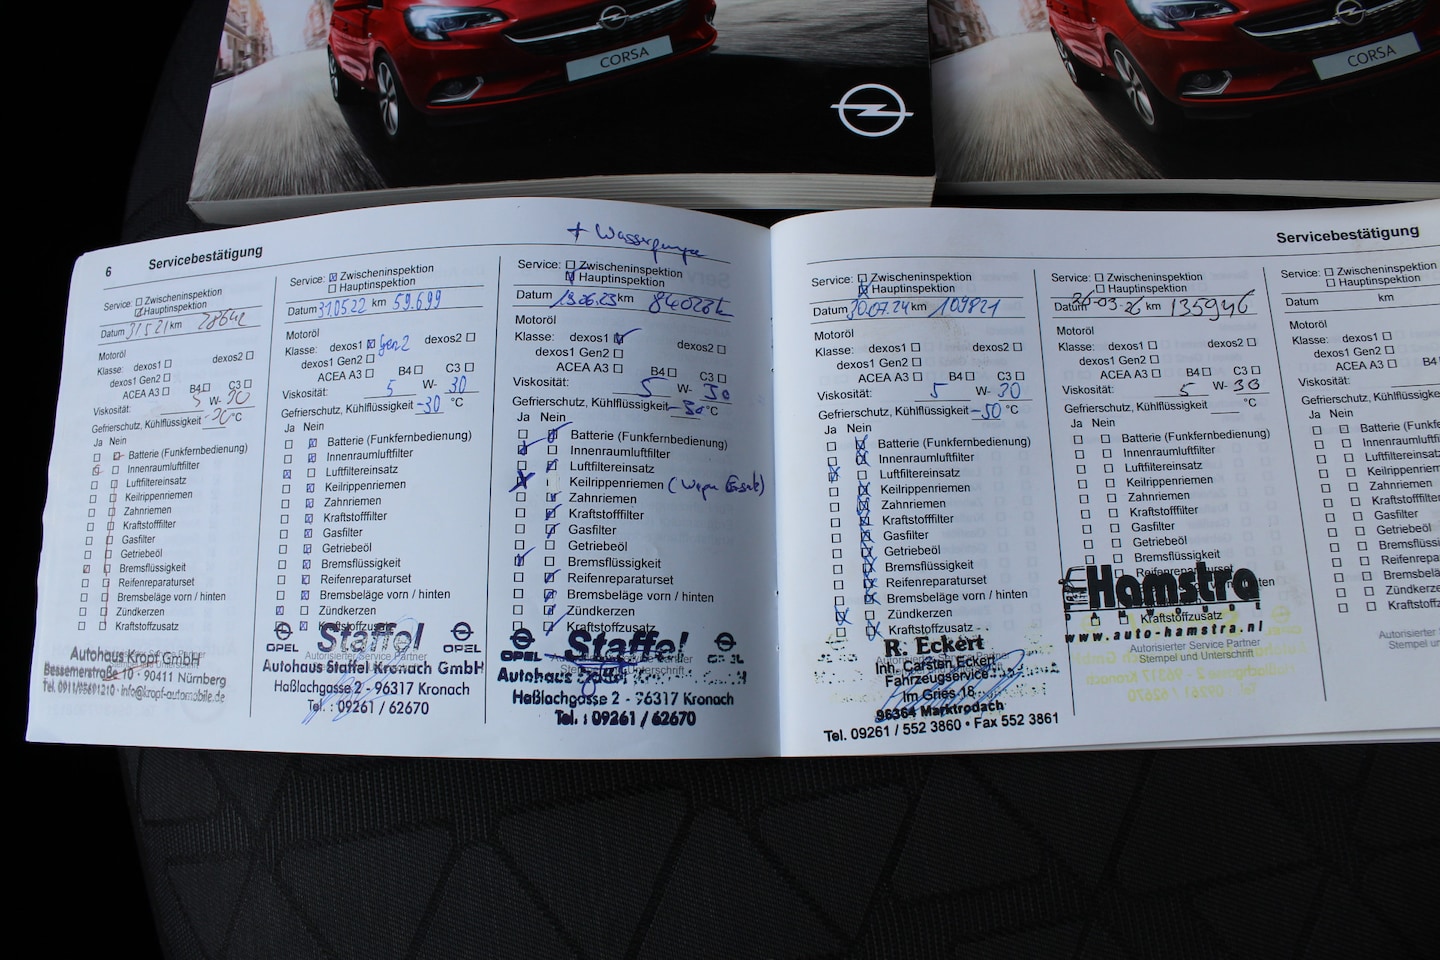 CORSA
CORSA
6 Servicebestätigung
Service: Zwischeninspektion
Hauptinspektion
Datum 31 5 21 km
Motoröl
Klasse: dexos1
dexos1 Gen2
ACEA A3 B4 C3
Viskosität: 5 W-
Gefrierschutz, Kühlflüssigkeit °C
Ja Nein
Batterie (Funkfernbedienung)
Innenraumluftfilter
Luftfiltereinsatz
Keilrippenriemen
Zahnriemen
Kraftstofffilter
Gasfilter
Getriebeöl
Bremsflüssigkeit
Reifenreparaturset
Bremsbeläge vorn / hinten
Zündkerzen
Kraftstoffzusatz
Autorisierter Service Partner
Autohaus Kropf GmbH
Bessemerstraße 10 · 90411 Nürnberg
info@kropf-automobile.de
Service: Zwischeninspektion
Hauptinspektion
Datum 31.05.22 km 59.699
Motoröl
Klasse: dexos1 Gen2 dexos2
dexos1 Gen2
ACEA A3 B4 C3
Viskosität: 5 W- 30
Gefrierschutz, Kühlflüssigkeit -30 °C
Ja Nein
Batterie (Funkfernbedienung)
Innenraumluftfilter
Luftfiltereinsatz
Keilrippenriemen
Zahnriemen
Kraftstofffilter
Gasfilter
Getriebeöl
Bremsflüssigkeit
Reifenreparaturset
Bremsbeläge vorn / hinten
Zündkerzen
Kraftstoffzusatz
OPEL Staffel OPEL
Autorisierter Service Partner
Autohaus Staffel Kronach GmbH
Haßlachgasse 2 - 96317 Kronach
Tel. : 09261 / 62670
+ Wasserpumpe
Service: Zwischeninspektion
Hauptinspektion
Datum 13.06.23 km
Motoröl
Klasse: dexos1 dexos2
dexos1 Gen2
ACEA A3 B4 C3
Viskosität: 5 W- 30
Gefrierschutz, Kühlflüssigkeit °C
Ja Nein
Batterie (Funkfernbedienung)
Innenraumluftfilter
Luftfiltereinsatz
Keilrippenriemen
Zahnriemen
Kraftstofffilter
Gasfilter
Getriebeöl
Bremsflüssigkeit
Reifenreparaturset
Bremsbeläge vorn / hinten
Zündkerzen
Kraftstoffzusatz
OPEL Staffel OPEL
Autohaus Staffel Kronach GmbH
Haßlachgasse 2 - 96317 Kronach
Tel. : 09261 / 62670
Servicebestätigung
Service: Zwischeninspektion
Hauptinspektion
Datum 30.07.24 km 109821
Motoröl
Klasse: dexos1 dexos2
dexos1 Gen2
ACEA A3 B4 C3
Viskosität: 5 W- 30
Gefrierschutz, Kühlflüssigkeit °C
Ja Nein
Batterie (Funkfernbedienung)
Innenraumluftfilter
Luftfiltereinsatz
Keilrippenriemen
Zahnriemen
Kraftstofffilter
Gasfilter
Getriebeöl
Bremsflüssigkeit
Reifenreparaturset
Bremsbeläge vorn / hinten
Zündkerzen
Kraftstoffzusatz
R. Eckert
Inh. Carsten Eckert
Fahrzeugservice
Im Gries 18
96364 Marktrodach
Tel. 09261 / 552 3860 • Fax 552 3861
Service: Zwischeninspektion
Hauptinspektion
Datum 26-03-26 km 135946
Motoröl
Klasse: dexos1 dexos2
dexos1 Gen2
ACEA A3 B4 C3
Viskosität: 5 W- 30
Gefrierschutz, Kühlflüssigkeit °C
Ja Nein
Batterie (Funkfernbedienung)
Innenraumluftfilter
Luftfiltereinsatz
Keilrippenriemen
Zahnriemen
Kraftstofffilter
Gasfilter
Getriebeöl
Bremsflüssigkeit
Reifenreparaturset
Hamstra
Kraftstoffzusatz
www.auto-hamstra.nl
Autorisierter Service Partner
Stempel und Unterschrift
Service: Zwischeninspektion
Hauptinspektion
Datum km
Motoröl
Klasse: dexos1
dexos1 Gen2
ACEA A3
Viskosität:
Gefrierschutz, Kühlflüssigkeit
Ja Nein
Innenraumluftfilter
Luftfiltereinsatz
Keilrippenriemen
Zahnriemen
Gasfilter
Getriebeöl